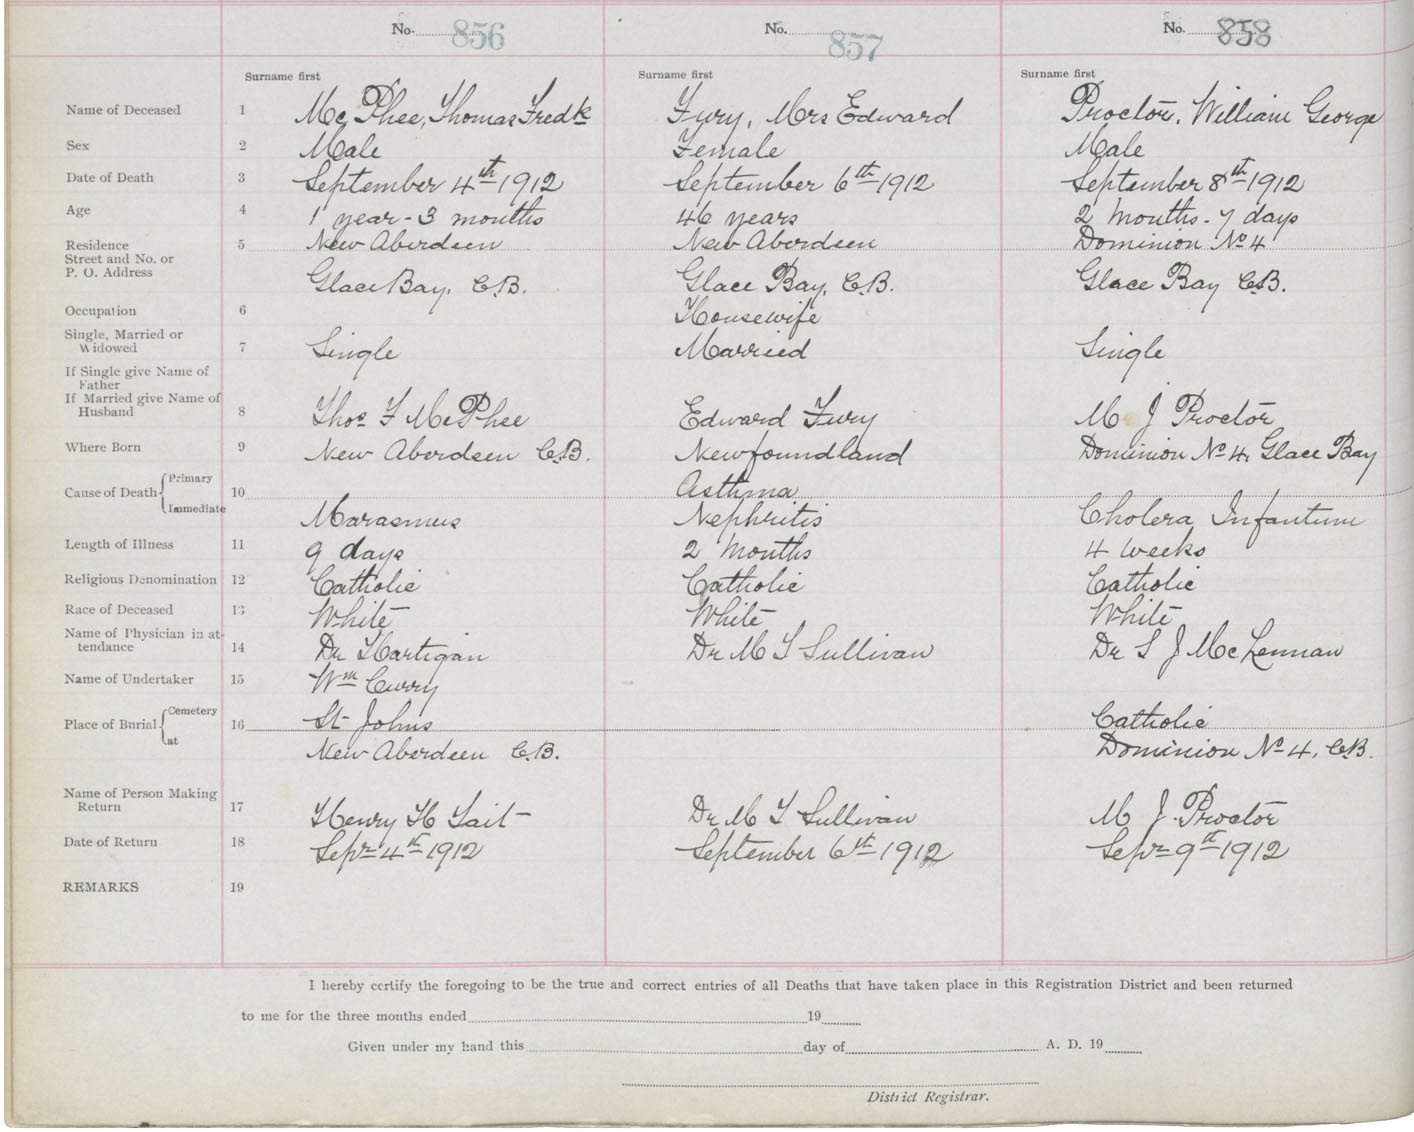 No. 856 No. 857 No. 858
Surname first Surname first Surname first
Name of Deceased 1 McPhee, Thomas Fredk Fury, Mrs Edward Proctor, William George
Sex 2 Male Female Male
Date of Death 3 September 4th 1912 September 6th 1912 September 8th 1912
Age 4 1 year - 3 months 46 years 2 Months - 7 days
Residence 5 New Aberdeen New Aberdeen Dominion No 4
Street and No. or
P. O. Address Glace Bay, C.B. Glace Bay, C.B. Glace Bay C.B.
Occupation 6 Housewife
Single, Married or
Widowed 7 Single Married Single
If Single give Name of
Father
If Married give Name of
Husband 8 Thos F McPhee Edward Fury M J Proctor
Where Born 9 New Aberdeen C.B. Newfoundland Dominion No 4, Glace Bay
Cause of Death Primary 10 Asthma
Immediate Marasmus Nephritis Cholera Infantum
Length of Illness 11 9 days 2 Months 4 weeks
Religious Denomination 12 Catholic Catholic Catholic
Race of Deceased 13 White White White
Name of Physician in at-
tendance 14 Dr Hartigan Dr M T Sullivan Dr S J McLennan
Name of Undertaker 15 Wm Curry
Place of Burial Cemetery 16 St Johns Catholic
at New Aberdeen C.B. Dominion No 4, C.B.
Name of Person Making
Return 17 Henry H Tait Dr M T Sullivan M J. Proctor
Date of Return 18 Sepr 4th 1912 September 6th 1912 Sepr 9th 1912
REMARKS 19
I hereby certify the foregoing to be the true and correct entries of all Deaths that have taken place in this Registration District and been returned
to me for the three months ended 19
Given under my hand this day of A. D. 19
District Registrar.